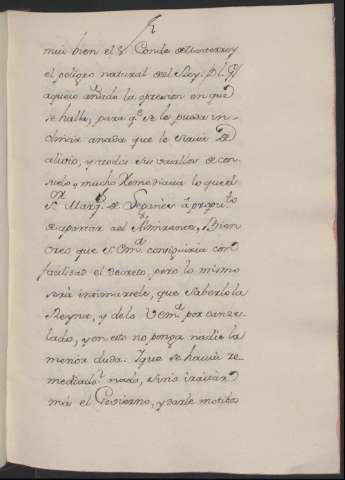 mui bien el S.r Conde de Monterrey
el peligro natural del Rey. D.l q.l
aquejo añade la opresion en que
se halla, para q.e se le pueda in-
clinar anada que le sirva de
alivio, y todos sus vasallos de con-
suelo, y mucho Remediaria lo que el
S.r Marq.s de Leganés a proposito
de apartar del Almirante, Bien
creo que S. Em.a conseguiria con
facilidad el decreto, pero lo mismo
sería intimarsele, que saberlo la
Reyna, y delo V Em.a por cance-
lado, y en esto no ponga nadie la
menor duda. Y que se havia re-
mediado? nada, sino irritar
más el Govierno, y darle motibos